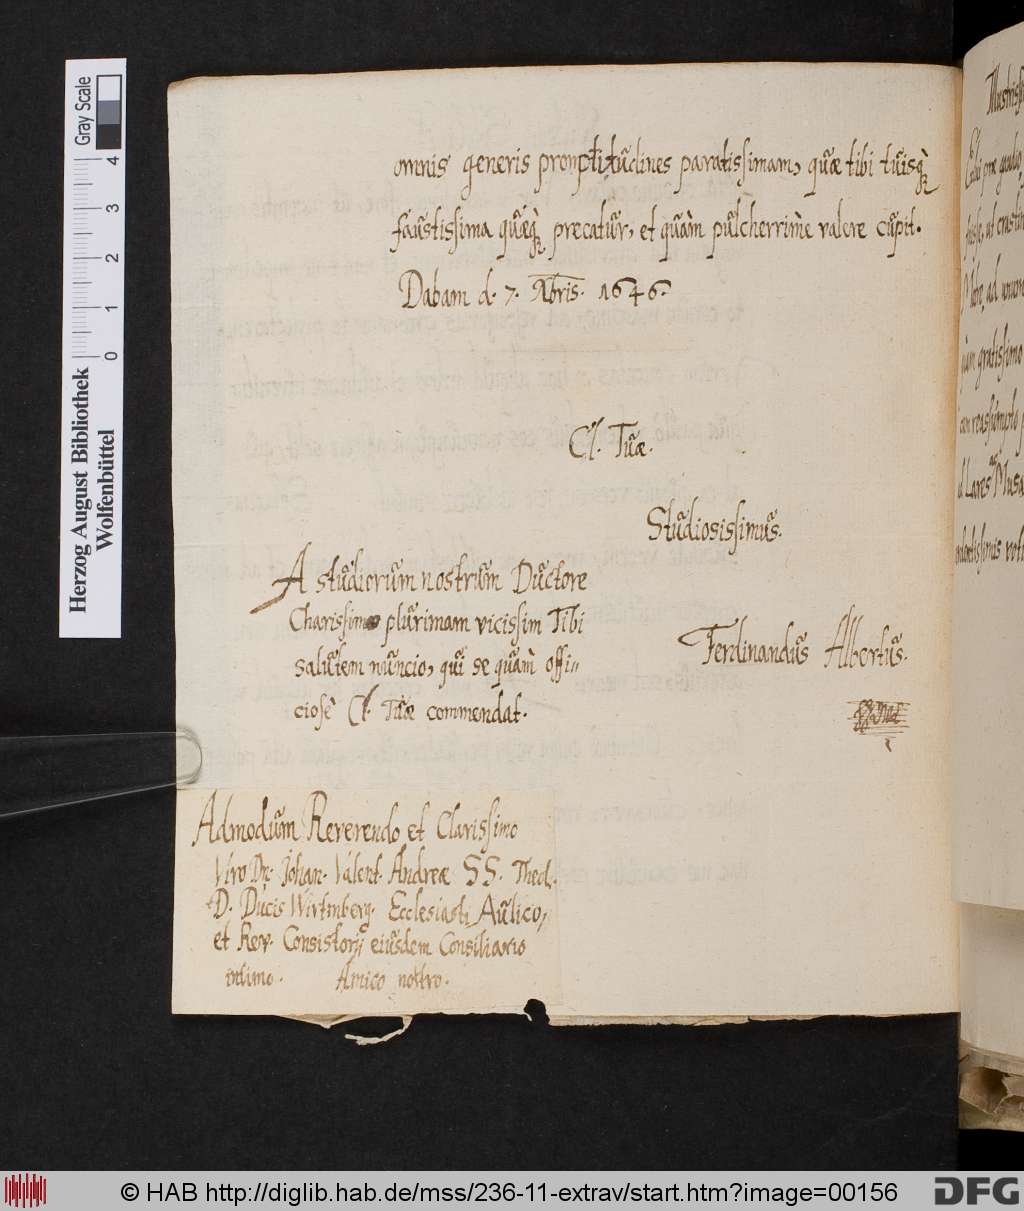 omnis generis promptitudines paratissimam, quæ tibi tuisq̀
faustissima quæq̀ precatur, et quàm pulcherrimè valere cupit.
Dabam d. 7. Abris. 1646.
Cl. Tuæ.
Studiosissimus.
Ferdinandus Albertus.
A studiorum nostrum Ductore
Charissimo plurimam vicissim Tibi
salutem nuncio, qui se quàm offi=
ciosè Cl. Tuæ commendat.
Admodum Reverendo et Clarissimo
Viro Dn. Johan. Valent. Andreæ SS. Theol.
D. Ducis Wirtmberg. Ecclesiasti Aulico,
et Rev. Consistorij eiusdem Consiliario
intimo. Amico nostro.
Gray Scale
0 1 2 3 4
Herzog August Bibliothek
Wolfenbüttel
© HAB http://diglib.hab.de/mss/236-11-extrav/start.htm?image=00156
DFG